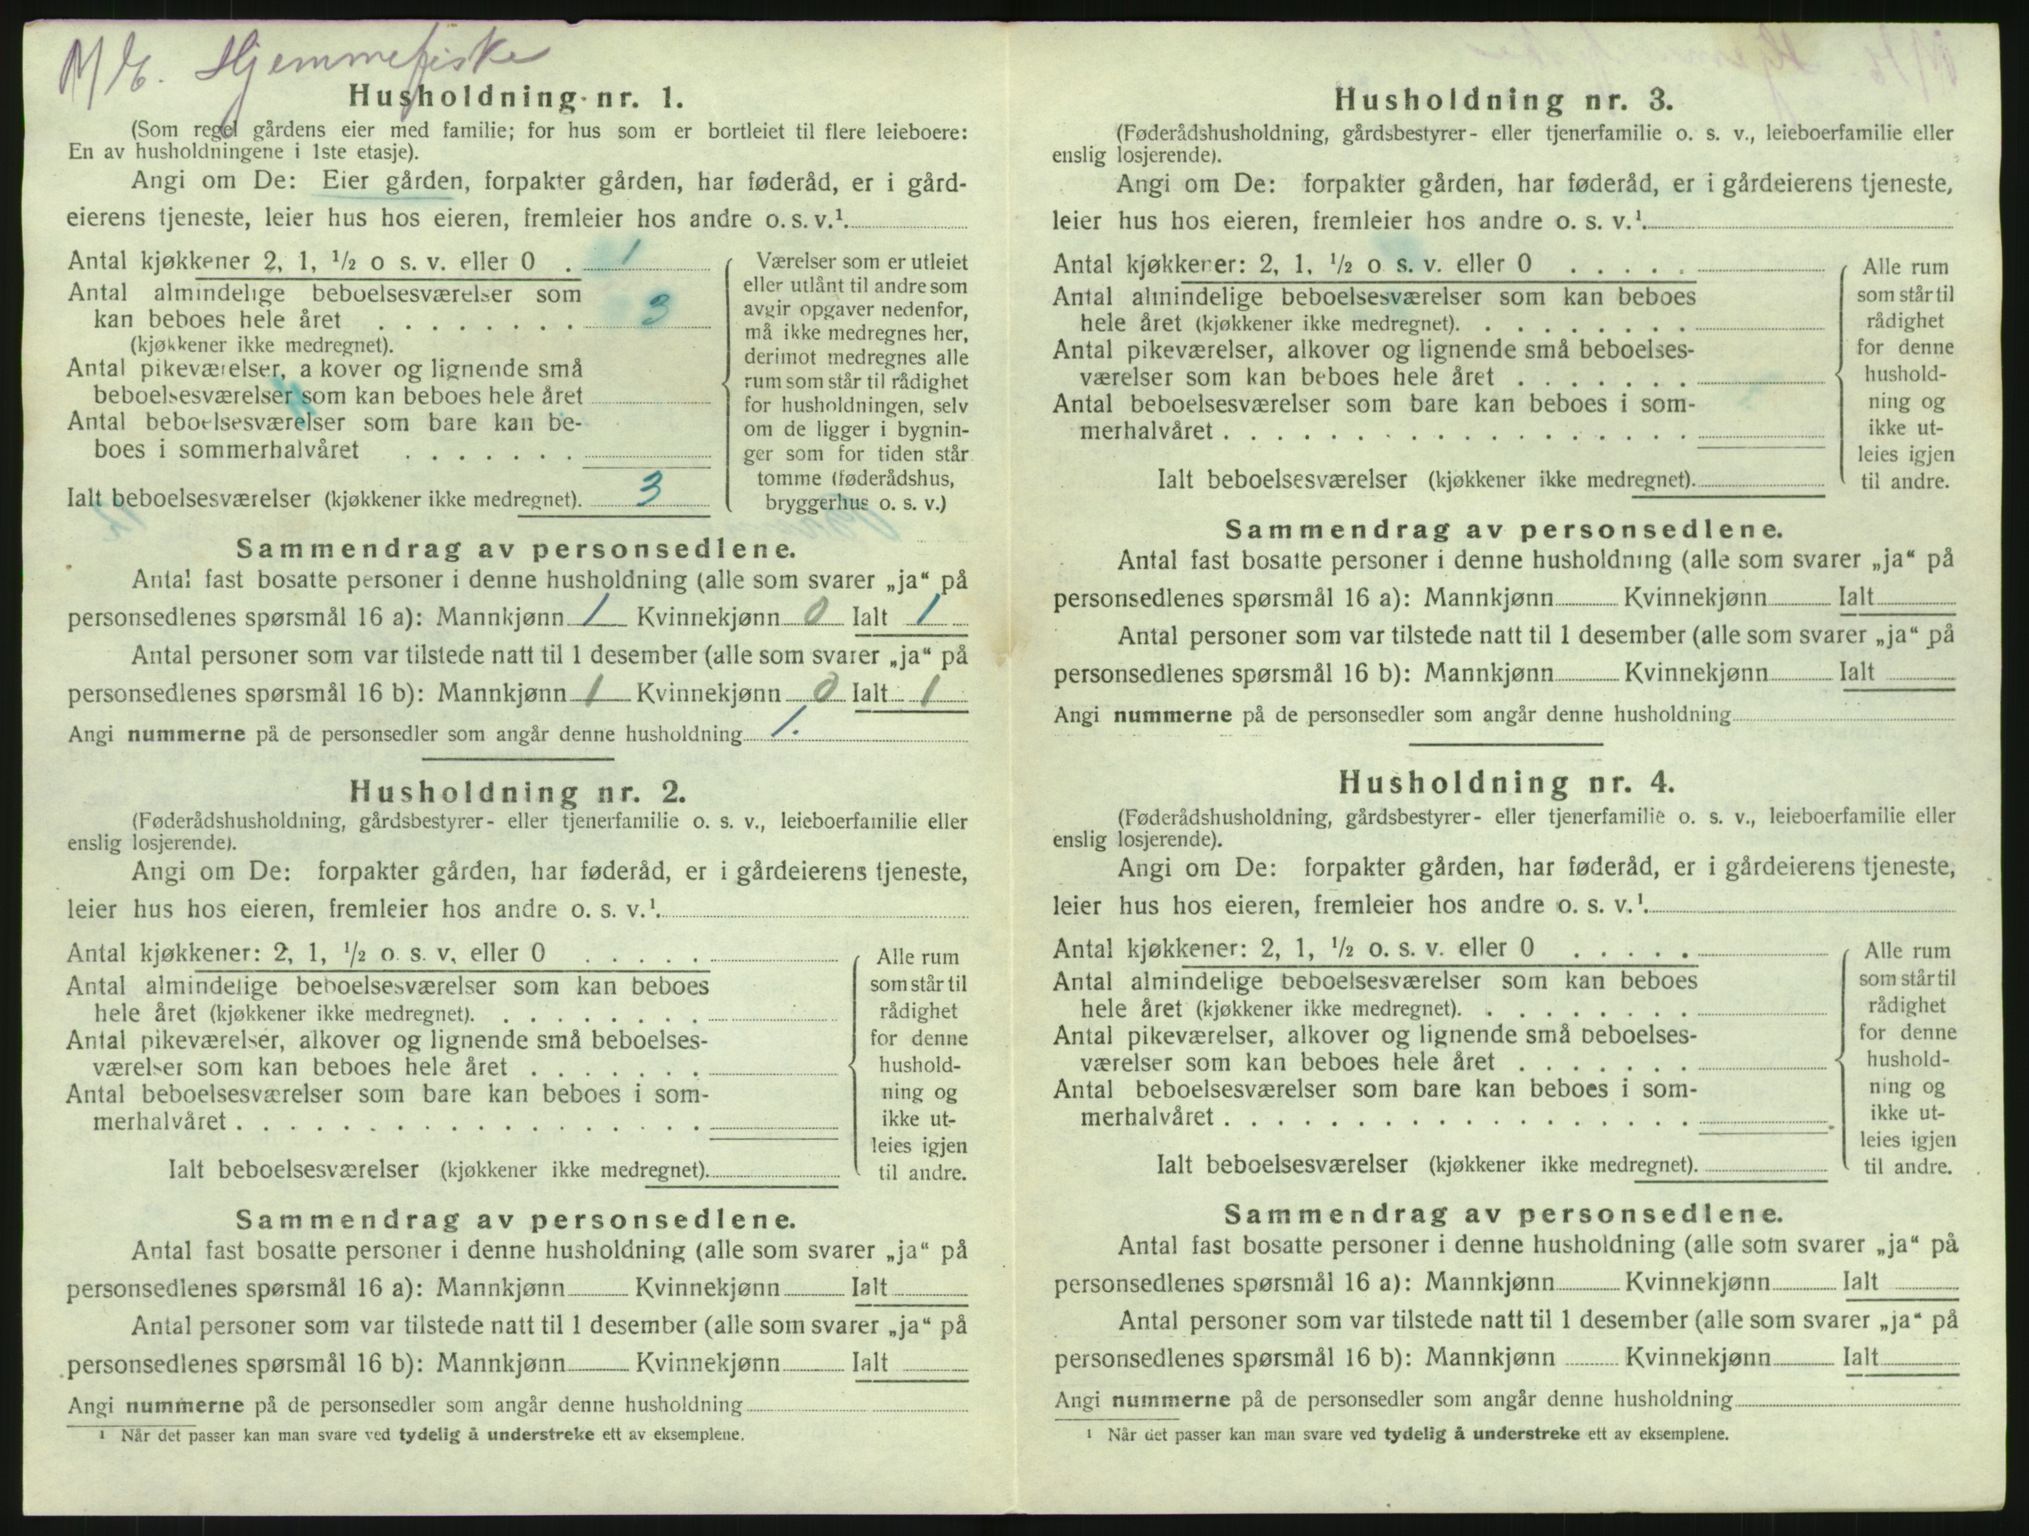 Hjemmefiske
Husholdning nr. 1.
(Som regel gårdens eier med familie; for hus som er bortleiet til flere leieboere:
En av husholdningene i 1ste etasje).
Angi om De: Eier gården, forpakter gården, har føderåd, er i gård-
eierens tjeneste, leier hus hos eieren, fremleier hos andre o. s. v.¹
Antal kjøkkener 2, 1, ½ o s. v. eller 0 . 1
Antal almindelige beboelsesværelser som
kan beboes hele året . . . . . . . . 3
(kjøkkener ikke medregnet).
Antal pikeværelser, a kover og lignende små
beboelsesværelser som kan beboes hele året
Antal beboelsesværelser som bare kan be-
boes i sommerhalvåret . . . . . . .
Ialt beboelsesværelser (kjøkkener ikke medregnet). 3
Værelser som er utleiet
eller utlånt til andre som
avgir opgaver nedenfor,
må ikke medregnes her,
derimot medregnes alle
rum som står til rådighet
for husholdningen, selv
om de ligger i bygnin-
ger som for tiden står
tomme (føderådshus,
bryggerhus o. s. v.)
Sammendrag av personsedlene.
Antal fast bosatte personer i denne husholdning (alle som svarer „ja“ på
personsedlenes spørsmål 16 a): Mannkjønn 1 Kvinnekjønn 0 Ialt 1
Antal personer som var tilstede natt til 1 desember (alle som svarer „ja“ på
personsedlenes spørsmål 16 b): Mannkjønn 1 Kvinnekjønn 0 Ialt 1
Angi nummerne på de personsedler som angår denne husholdning 1.
Husholdning nr. 2.
(Føderådshusholdning, gårdsbestyrer- eller tjenerfamilie o. s. v., leieboerfamilie eller
enslig losjerende).
Angi om De: forpakter gården, har føderåd, er i gårdeierens tjeneste,
leier hus hos eieren, fremleier hos andre o. s. v.¹.
Antal kjøkkener: 2, 1, ½ o. s. v. eller 0 . . . . .
Antal almindelige beboelsesværelser som kan beboes
hele året (kjøkkener ikke medregnet). . . . . . . . .
Antal pikeværelser, alkover og lignende små beboelses-
værelser som kan beboes hele året . . . . . . .
Antal beboelsesværelser som bare kan beboes i som-
merhalvåret . . . . . . . . . . . . . . . . . .
Ialt beboelsesværelser (kjøkkener ikke medregnet).
Alle rum
som står til
rådighet
for denne
hushold-
ning og
ikke ut-
leies igjen
til andre.
Sammendrag av personsedlene.
Antal fast bosatte personer i denne husholdning (alle som svarer „ja“ på
personsedlenes spørsmål 16 a): Mannkjønn Kvinnekjønn Ialt
Antal personer som var tilstede natt til 1 desember (alle som svarer „ja“ på
personsedlenes spørsmål 16 b): Mannkjønn Kvinnekjønn Ialt
Angi nummerne på de personsedler som angår denne husholdning
¹ Når det passer kan man svare ved tydelig å understreke ett av eksemplene.
Husholdning nr. 3.
(Føderådshusholdning, gårdsbestyrer- eller tjenerfamilie o. s. v., leieboerfamilie eller
enslig losjerende).
Angi om De: forpakter gården, har føderåd, er i gårdeierens tjeneste,
leier hus hos eieren, fremleier hos andre o. s. v.¹.
Antal kjøkkener: 2, 1, ½ o s. v. eller 0 . . . . .
Antal almindelige beboelsesværelser som kan beboes
hele året (kjøkkener ikke medregnet). . . . . . . . .
Antal pikeværelser, alkover og lignende små beboelses-
værelser som kan beboes hele året . . . . . . .
Antal beboelsesværelser som bare kan beboes i som-
merhalvåret . . . . . . . . . . . . . . . . . .
Ialt beboelsesværelser (kjøkkener ikke medregnet).
Alle rum
som står til
rådighet
for denne
hushold-
ning og
ikke ut-
leies igjen
til andre.
Sammendrag av personsedlene.
Antal fast bosatte personer i denne husholdning (alle som svarer „ja“ på
personsedlenes spørsmål 16 a): Mannkjønn Kvinnekjønn Ialt
Antal personer som var tilstede natt til 1 desember (alle som svarer „ja“ på
personsedlenes spørsmål 16 b): Mannkjønn Kvinnekjønn Ialt
Angi nummerne på de personsedler som angår denne husholdning
Husholdning nr. 4.
(Føderådshusholdning, gårdsbestyrer- eller tjenerfamilie o. s. v., leieboerfamilie eller
enslig losjerende).
Angi om De: forpakter gården, har føderåd, er i gårdeierens tjeneste,
leier hus hos eieren, fremleier hos andre o. s. v.¹.
Antal kjøkkener: 2, 1, ½ o. s. v. eller 0 . . . . .
Antal almindelige beboelsesværelser som kan beboes
hele året (kjøkkener ikke medregnet). . . . . . . . .
Antal pikeværelser, alkover og lignende små beboelses-
værelser som kan beboes hele året . . . . . . .
Antal beboelsesværelser som bare kan beboes i som-
merhalvåret . . . . . . . . . . . . . . . . . .
Ialt beboelsesværelser (kjøkkener ikke medregnet).
Alle rum
som står til
rådighet
for denne
hushold-
ning og
ikke ut-
leies igjen
til andre.
Sammendrag av personsedlene.
Antal fast bosatte personer i denne husholdning (alle som svarer „ja“ på
personsedlenes spørsmål 16 a): Mannkjønn Kvinnekjønn Ialt
Antal personer som var tilstede natt til 1 desember (alle som svarer „ja“ på
personsedlenes spørsmål 16 b): Mannkjønn Kvinnekjønn Ialt
Angi nummerne på de personsedler som angår denne husholdning
¹ Når det passer kan man svare ved tydelig å understreke ett av eksemplene.